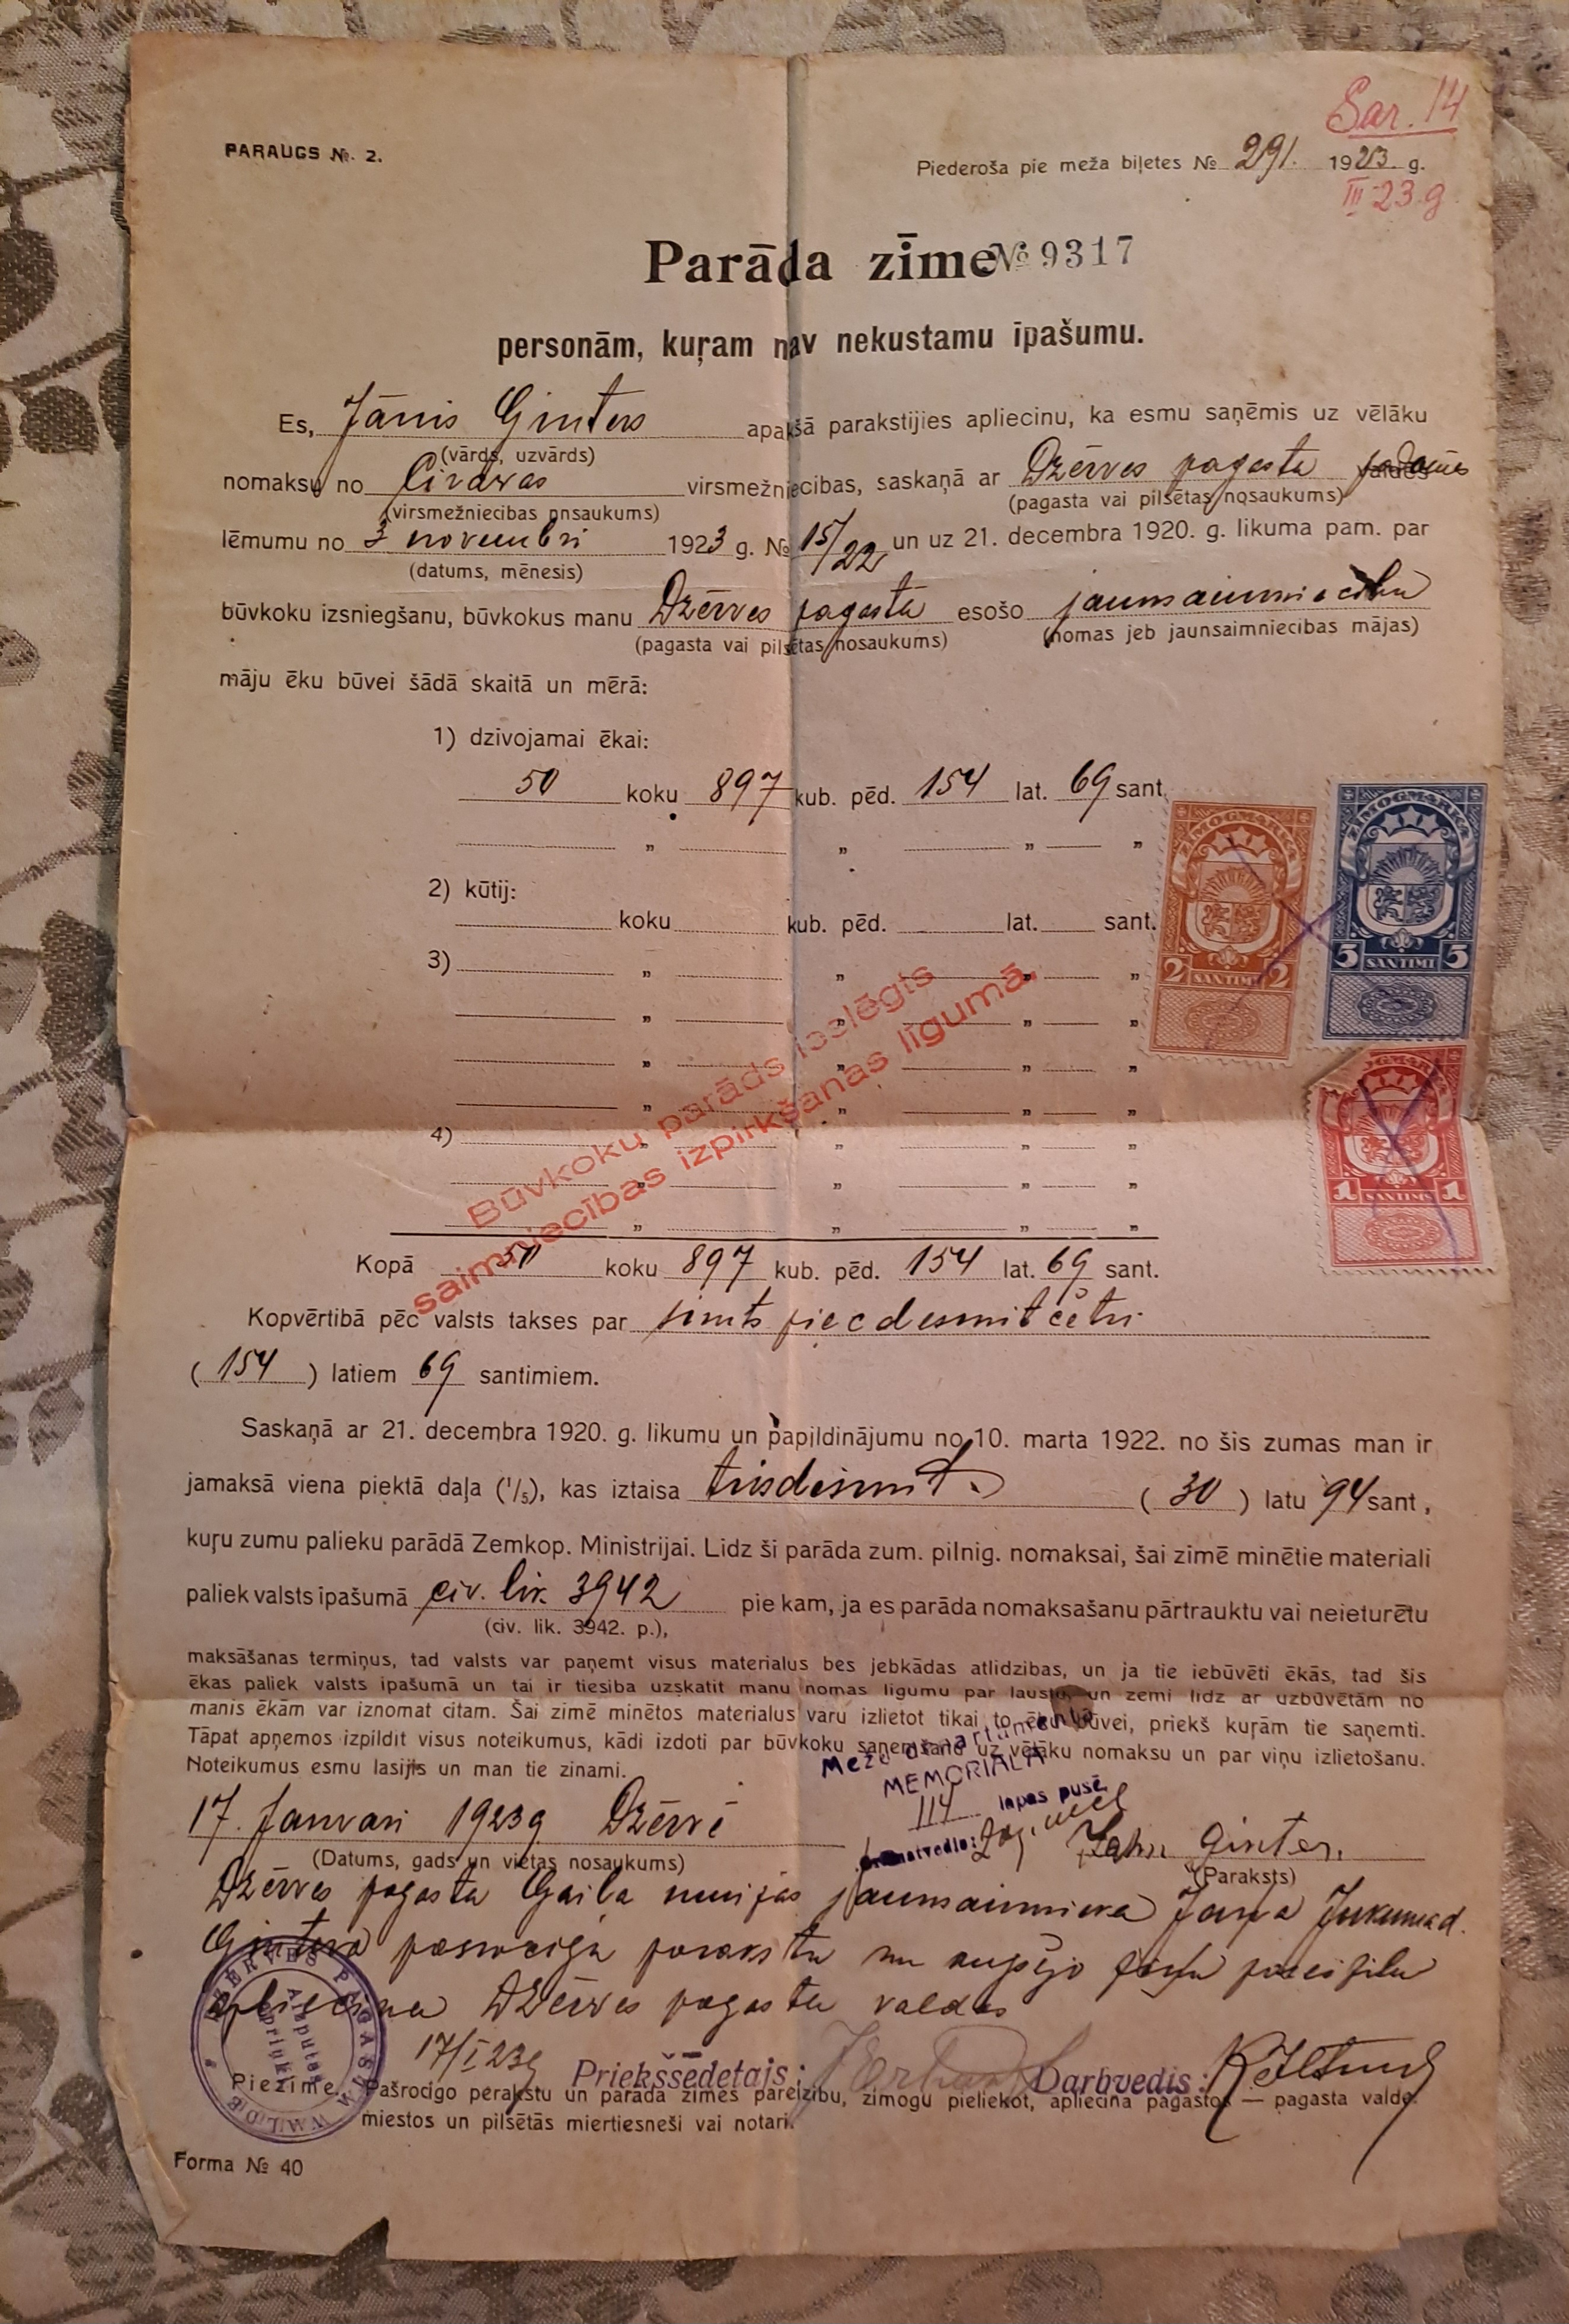 Sar. 14
PARAUGS №. 2.
Piederoša pie meža biļetes № 291. 1923. g.
III 23. g
Parāda zīme № 9317
personām, kuŗam nav nekustamu īpašumu.
Es, Jānis Ginters apakšā parakstijies apliecinu, ka esmu saņēmis uz vēlāku
(vārds, uzvārds)
nomaksu no Cīravas virsmežniecibas, saskaņā ar Dzērves pagasta
(virsmežniecibas pnsaukums) (pagasta vai pilsētas nosaukums)
lēmumu no 3 novembri 1923 g. № 15/22 un uz 21. decembra 1920. g. likuma pam. par
(datums, mēnesis)
būvkoku izsniegšanu, būvkokus manu Dzērves pagasta esošo jaunsaimniecibu
(pagasta vai pilsētas nosaukums) (nomas jeb jaunsaimniecibas mājas)
māju ēku būvei šādā skaitā un mērā:
1) dzivojamai ēkai:
50 koku 897 kub. pēd. 154 lat. 69 sant.
" " " "
2) kūtij:
koku kub. pēd. lat. sant.
3) " " " "
" " " "
" " " "
" " " "
4) " " " "
" " " "
" " " "
Būvkoku parāds ieslēgts
saimniecības izpirkšanas līgumā.
ZĪMOGMARKA
2 SANTIMI 2
ZĪMOGMARKA
5 SANTIMI 5
ZĪMOGMARKA
1 SANTIMS 1
Kopā 50 koku 897 kub. pēd. 154 lat. 69 sant.
Kopvērtibā pēc valsts takses par simts piecdesmit četri
( 154 ) latiem 69 santimiem.
Saskaņā ar 21. decembra 1920. g. likumu un papildinājumu no 10. marta 1922. no šis zumas man ir
jamaksā viena piektā daļa (1/5), kas iztaisa trisdesmit. ( 30 ) latu 94 sant,
kuŗu zumu palieku parādā Zemkop. Ministrijai. Lidz ši parāda zum. pilnig. nomaksai, šai zimē minētie materiali
paliek valsts īpašumā civ. lik. 3942 pie kam, ja es parāda nomaksašanu pārtrauktu vai neieturētu
(civ. lik. 3942. p.),
maksāšanas termiņus, tad valsts var paņemt visus materialus bes jebkādas atlidzibas, un ja tie iebūvēti ēkās, tad šis
ēkas paliek valsts ipašumā un tai ir tiesiba uzskatit manu nomas ligumu par laustu, un zemi lidz ar uzbūvētām no
manis ēkām var iznomat citam. Šai zimē minētos materialus varu izlietot tikai to ēku būvei, priekš kuŗām tie saņemti.
Tāpat apņemos izpildit visus noteikumus, kādi izdoti par būvkoku saņemšanu uz vēlāku nomaksu un par viņu izlietošanu.
Noteikumus esmu lasijis un man tie zinami.
Meža departamenta
MEMORIALA
114 lapas pusē
Grāmatvedis:
17. Janvari 1923g Dzērvē Jahn Ginter.
(Datums, gads un vietas nosaukums) (Paraksts)
Dzērves pagasta Gaiļa muižas jaunsaimnieka Jāņa Jukuma d.
Gintera pašrocīgu parakstu un augšējo pareizibu
apliecina Dzērves pagasta valdes
17/I 23g Priekšsēdetajs: Darbvedis:
DZĒRVES PAGASTA VALDE
Aisputes apriņķī
Piezime. Pašrocigo perakstu un parada zimes pareizibu, zimogu pieliekot, apliecina pagastos — pagasta valde.
miestos un pilsētās miertiesneši vai notari.
Forma № 40